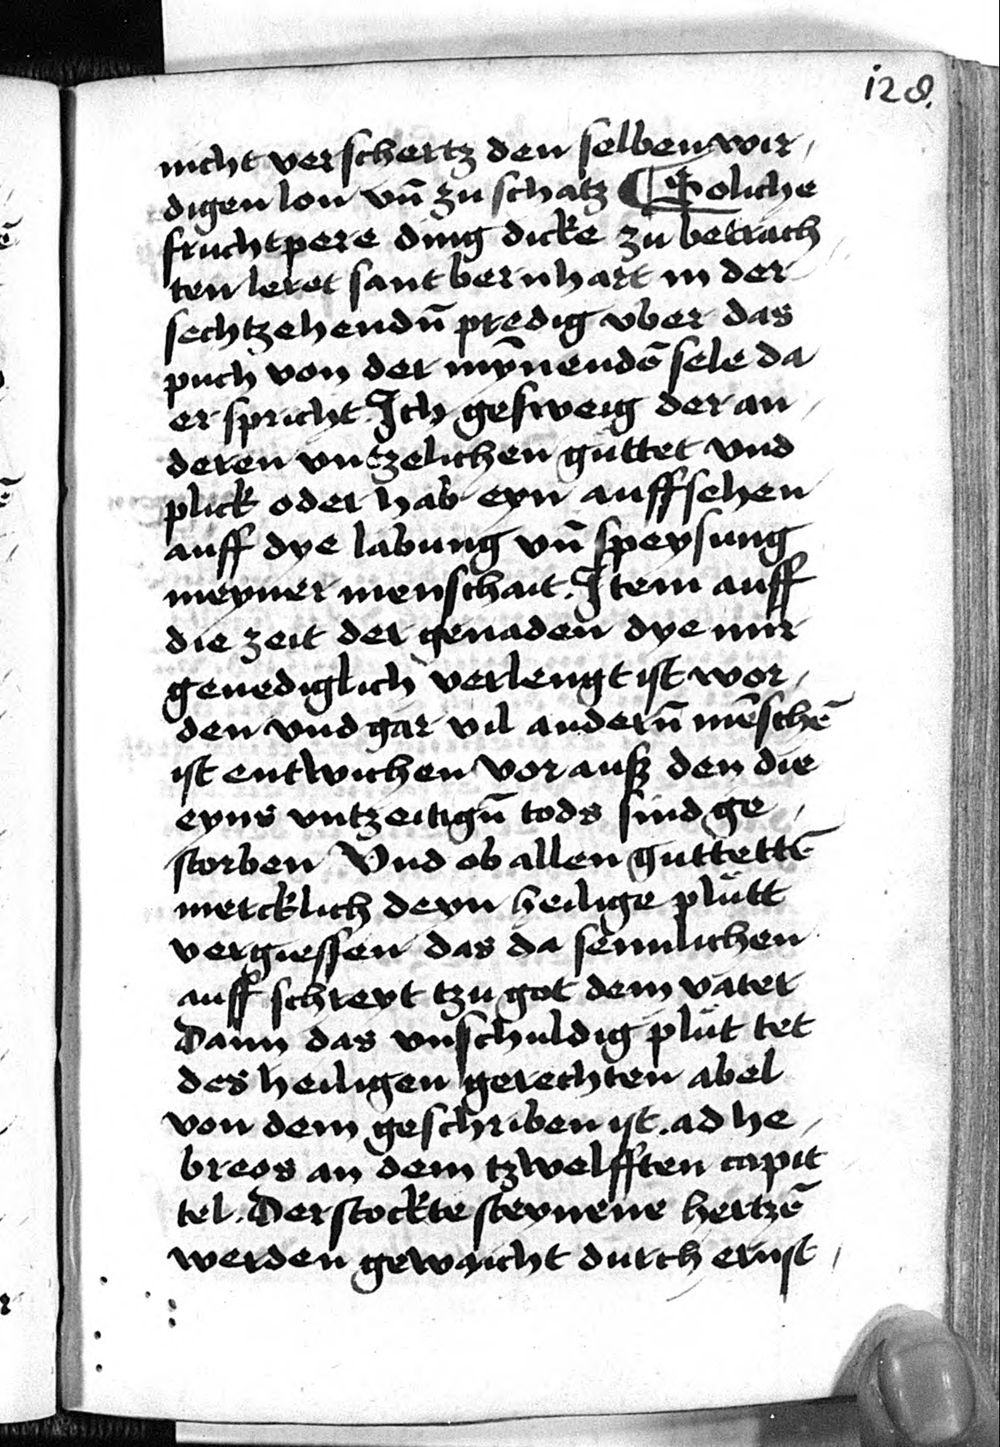 128.
nicht verschertz den selben wir-
digen lon vn̄ zu schatz ¶ Soliche
fruchtpere ding dicke zu betrach
ten leret sant bernhart in der
sechtzehendn̄ predig vber das
puch von der mȳnendē sele da
er spricht. Ich gesweig der an-
deren vntzelichen guttet vnd
plick oder hab eyn auffsehen
auff dye labung vn̄ speysung
meyner menschait. Item auff
die zeit der genaden dye mir
genediglich verlengt ist wor-
den vnd gar vil andern̄ mēschē
ist entwichen vor auß den die
eyns vntzeitign̄ tods sind ge-
storben Vnd ob allen guttettē
mercklich deyn heilige plůtt
vergiessen das da sennlichen
auff schreyt tzu got dem vater
Dann das vnschuldig plůt tet
des heiligen gerechten abel
von dem geschriben ist. ad he-
breos an dem tzwelfften capit
tel. Der stockte steynene hertzē
werden gewaicht durch ernst-